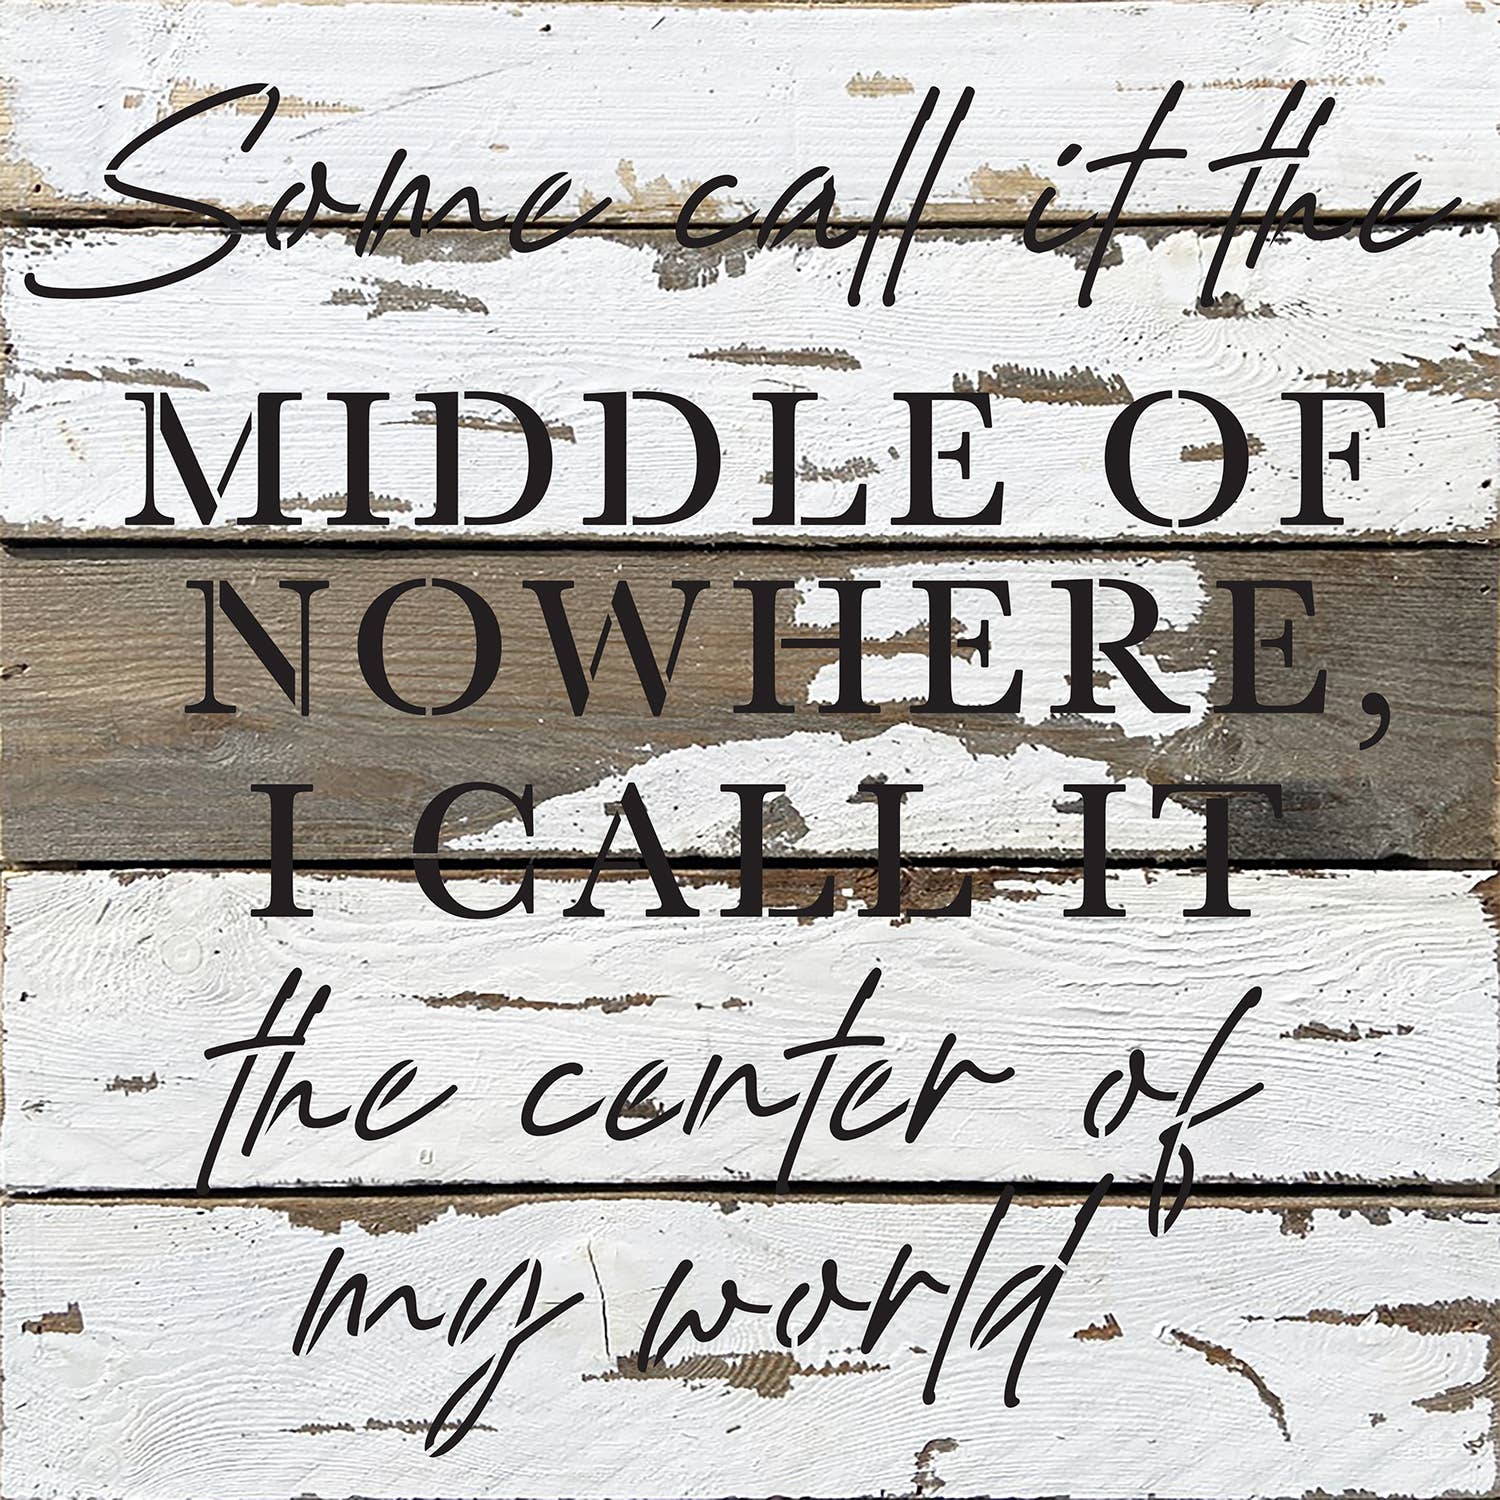 Some call it the
MIDDLE OF
NOWHERE,
I CALL IT
the center of
my world